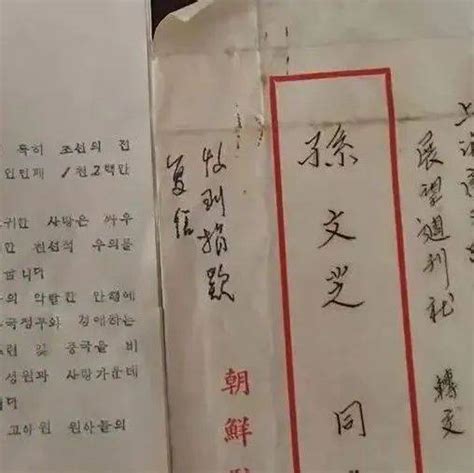 특히 조선의 전
인민페 1천2백만
귀한 사랑은 싸우
한 친선적 우의를
합니다
의 악랄한 만행에
국정부와 경애하는
중국을 비
성원과 사랑가운데
니다
고아원 원아들의
上海
展望週刊社 轉交
孫文光 同
收到捐款
复信
朝鮮